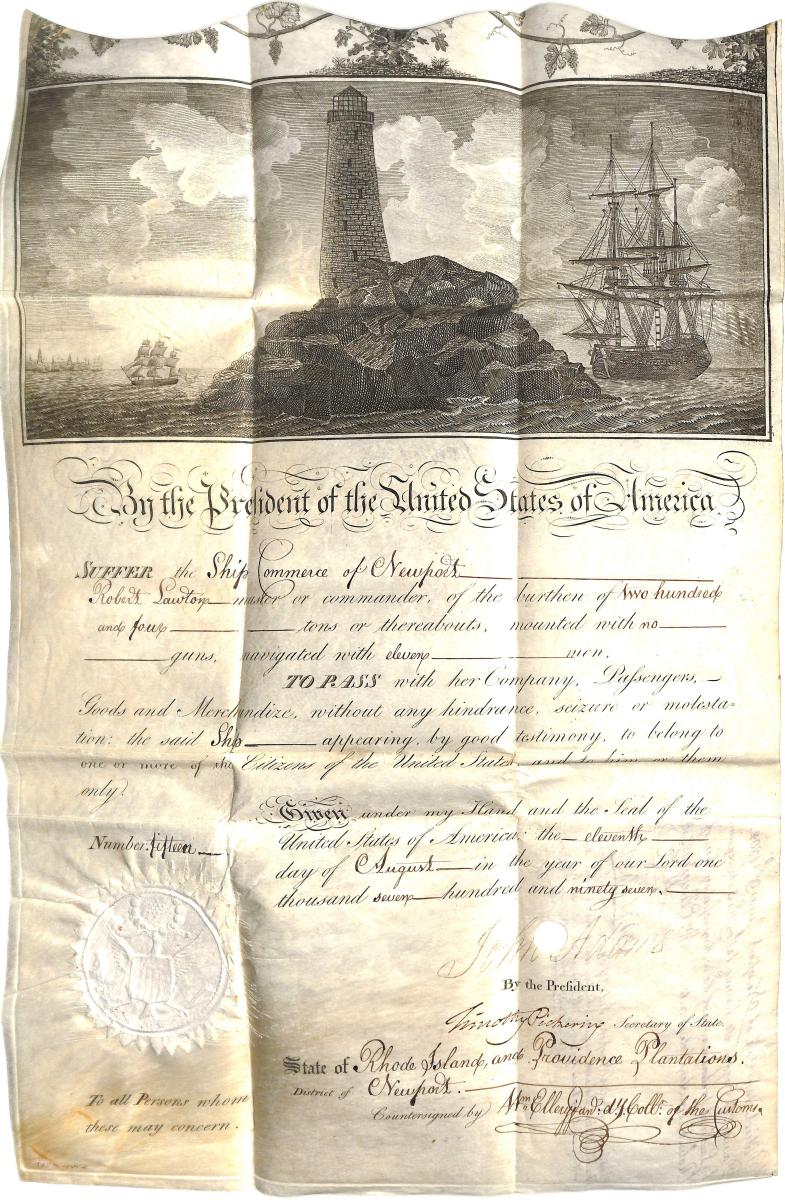 By the President of the United States of America
SUFFER the Ship Commerce of Newport
Robert Lawton master or commander, of the burthen of two hundred
and four tons or thereabouts, mounted with no
guns, navigated with eleven men,
TO PASS with her Company, Passengers,
Goods and Merchandize, without any hindrance, seizure or molesta-
tion: the said Ship appearing, by good testimony, to belong to
one or more of the Citizens of the United States, and to him or them
only.
Given under my Hand and the Seal of the
United States of America: the eleventh
Number. fifteen
day of August in the year of our Lord one
thousand seven hundred and ninety seven.
John Adams
By the President,
Timothy Pickering Secretary of State.
State of Rhode Island, and Providence Plantations.
District of Newport.
To all Persons whom
these may concern.
Countersigned by Wm Ellery Collr. of the Customs.